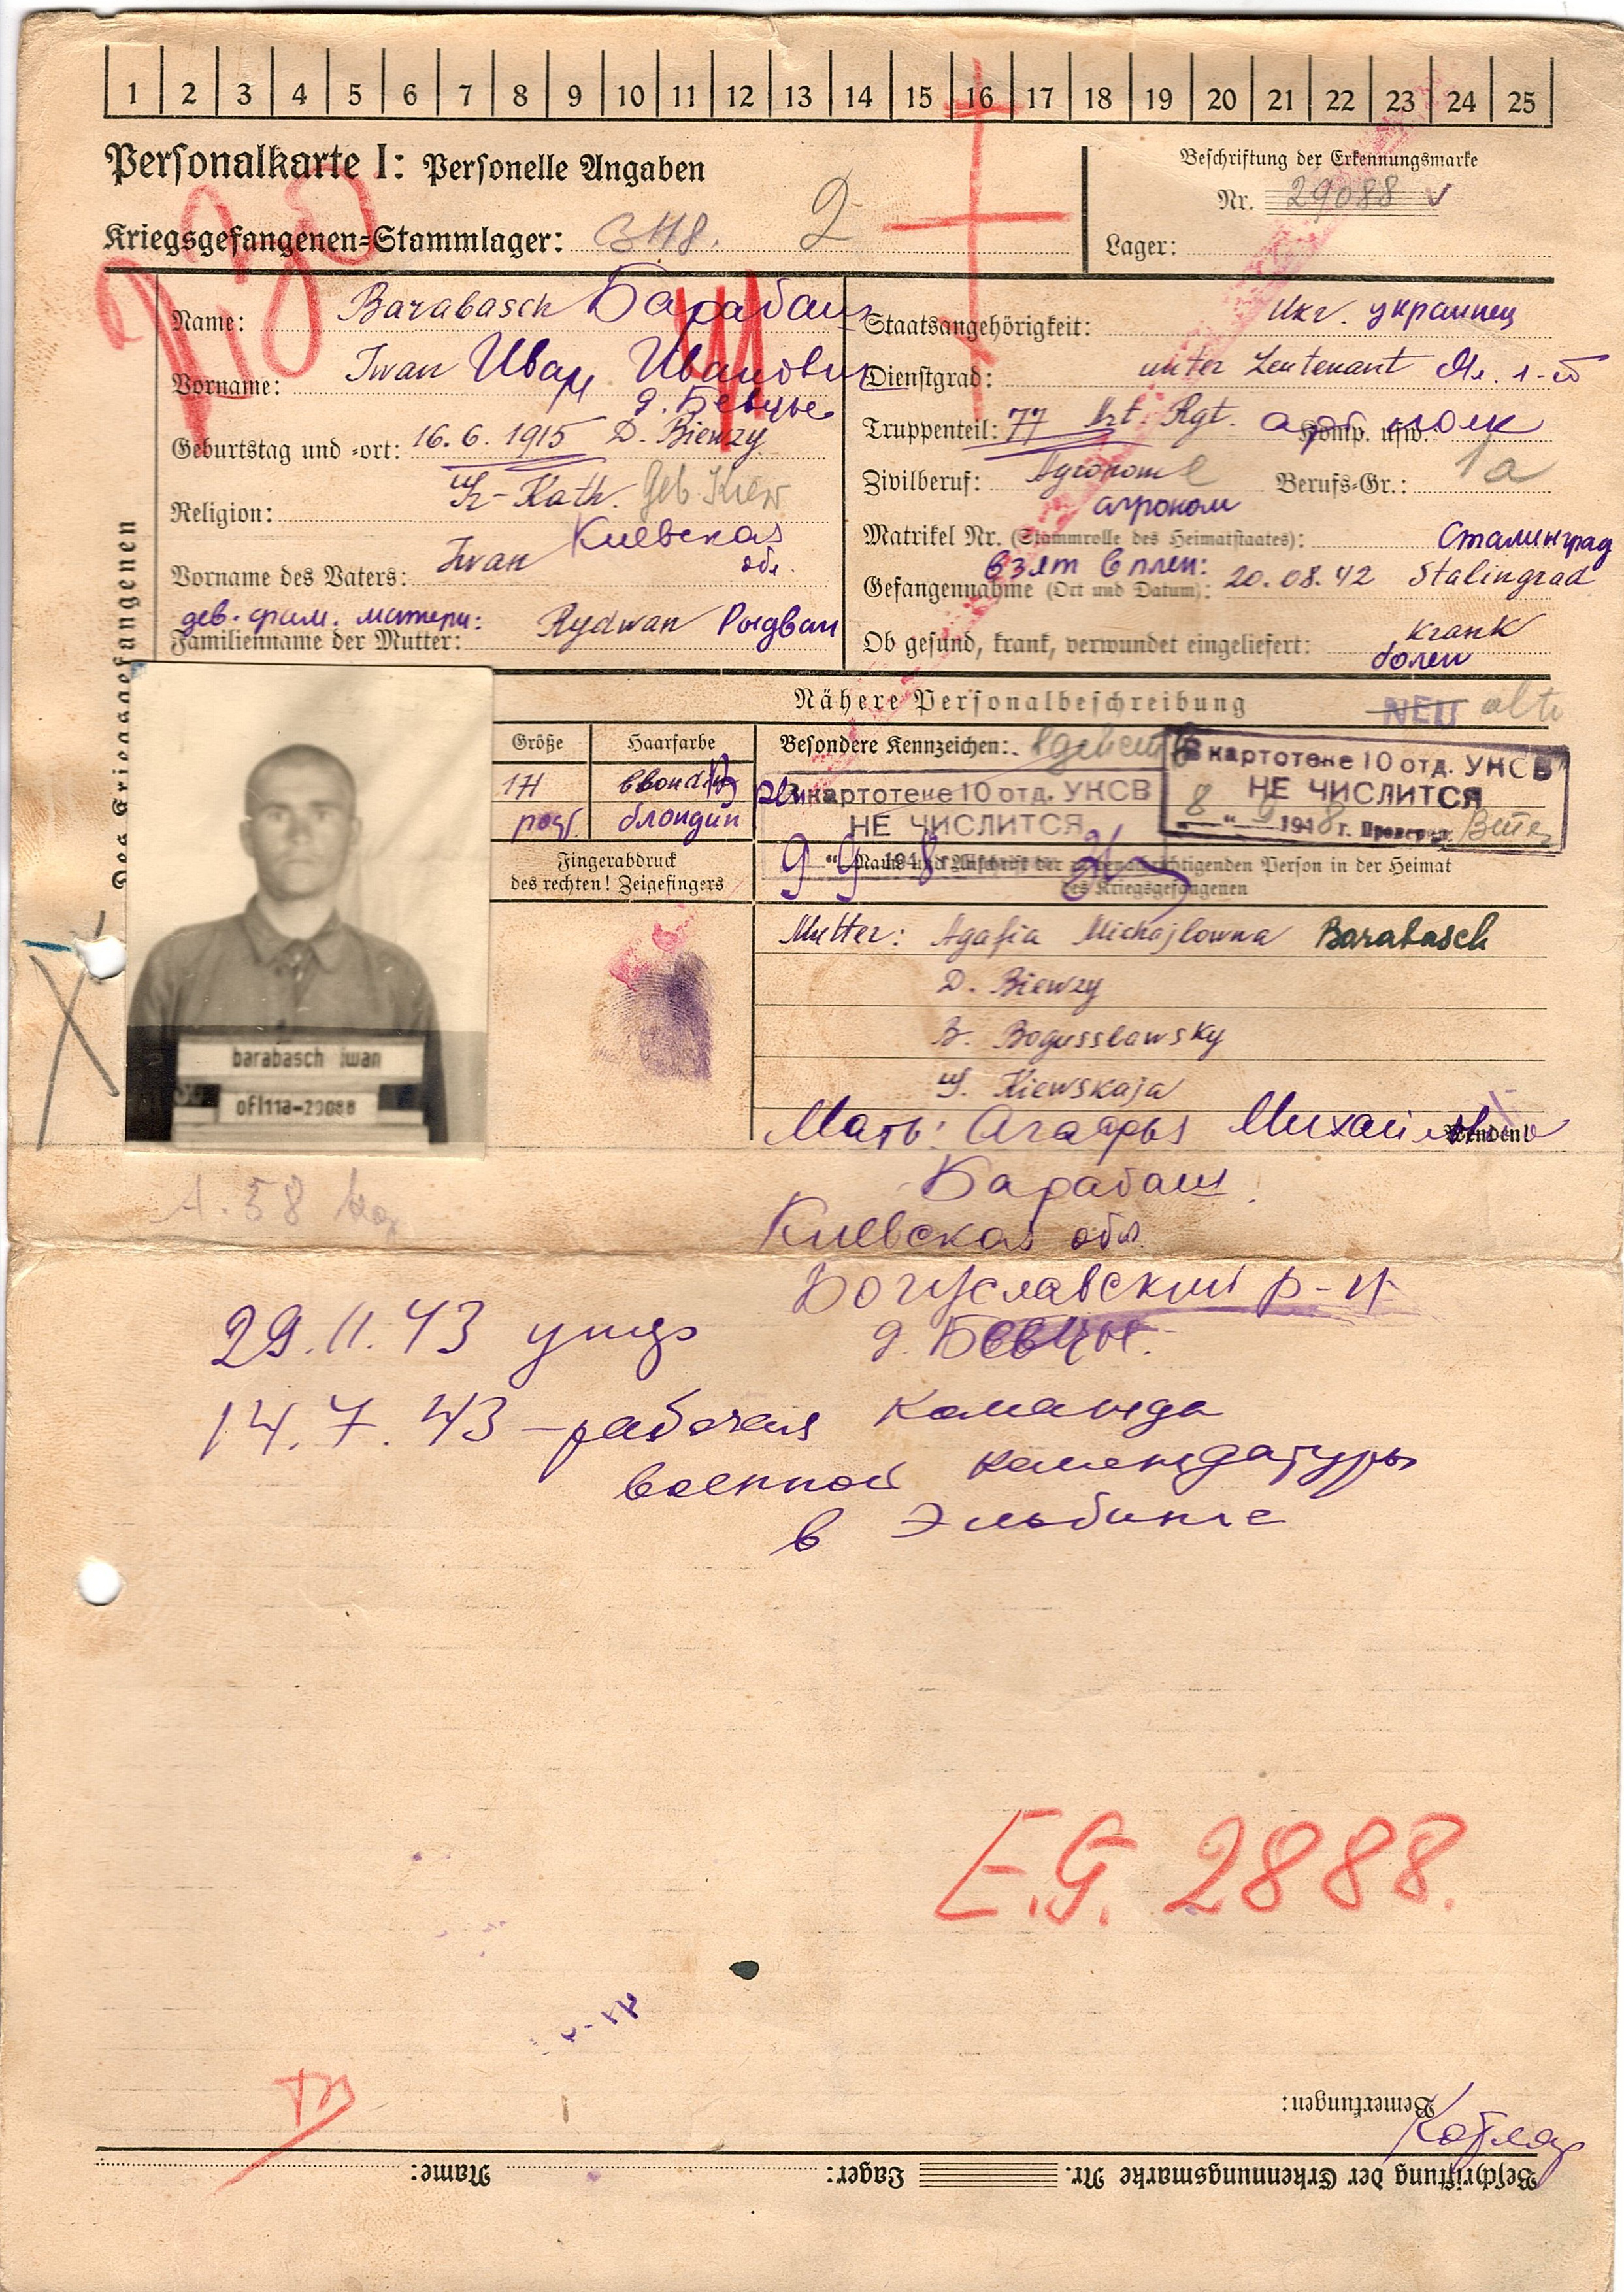 1 2 3 4 5 6 7 8 9 10 11 12 13 14 15 16 17 18 19 20 21 22 23 24 25
Personalkarte I: Personelle Angaben
Beschriftung der Erkennungsmarke
Nr. 29088
Kriegsgefangenen=Stammlager: 2
Lager:
Des Kriegsgefangenen
Name: Barabasch Барабаш
Vorname: Iwan Иван Иванович
д. Бевцы
Geburtstag und =ort: 16.6.1915 D. Biewzy
Religion: Gr-Kath. Geb. Kiew
Киевская обл.
Vorname des Vaters: Iwan
дев. фам. матери:
Familienname der Mutter: Rydwan Рыдван
Staatsangehörigkeit: Ukr. украинец
Dienstgrad: unter Leutenant Мл. л-т
Truppenteil: 77 Art. Rgt. Komp. usw. арт полк
Zivilberuf: Agronom Berufs=Gr.: 1a
агроном
Matrikel Nr. (Stammrolle des Heimatstaates): Сталинград
взят в плен:
Gefangennahme (Ort und Datum): 20.08.42 Stalingrad
Ob gesund, krank, verwundet eingeliefert: krank
болен
Nähere Personalbeschreibung NEU alte
Größe Haarfarbe Besondere Kennzeichen:
блондин
В картотеке 10 отд. УНСВ
НЕ ЧИСЛИТСЯ
9 " 9 1948
В картотеке 10 отд. УНСВ
НЕ ЧИСЛИТСЯ
8 " 9 1948 г. Проверил
Fingerabdruck
des rechten! Zeigefingers
Name und Anschrift der zu benachrichtigenden Person in der Heimat
des Kriegsgefangenen
Mutter: Agafia Michajlowna Barabasch
D. Biewzy
B. Bogusslawsky
G. Kiewskaja
barabasch iwan
ofl11a-29088
Wenden!
Мать: Агафья Михайловна
Барабаш
Киевская обл.
Богуславский р-н
д. Бевцы.
29.11.43
14.7.43 – рабочая команда
военной комендатуры
в Эльбинге
E.G. 2888.
Bemerkungen:
Beschriftung der Erkennungsmarke Nr. Lager: Name: